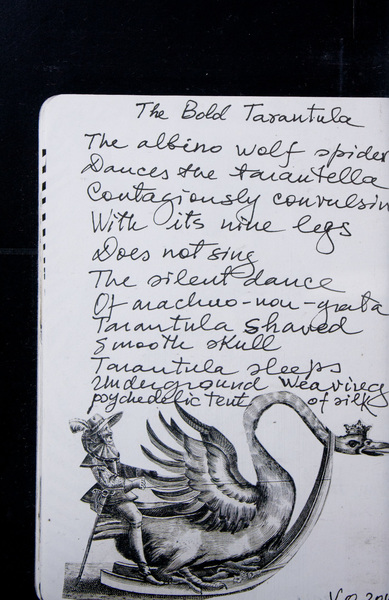 The Bold Tarantula
The albino wolf spider
Dances the tarantella
Contagiously convulsin
With its nine legs
Does not sing
The silent dance
Of arachno-non-grata
Tarantula shaved
Smooth skull
Tarantula sleeps
Underground weaving
psychedelic tent of silk